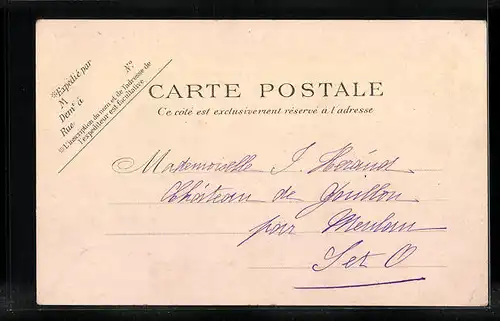 Expédié par
M
Demt à
Rue No
L'inscription du nom et de l'adresse de
l'expéditeur est facultative
CARTE POSTALE
Ce côté est exclusivement réservé à l'adresse
Mademoiselle J.
Château de
par Meulan
S et O